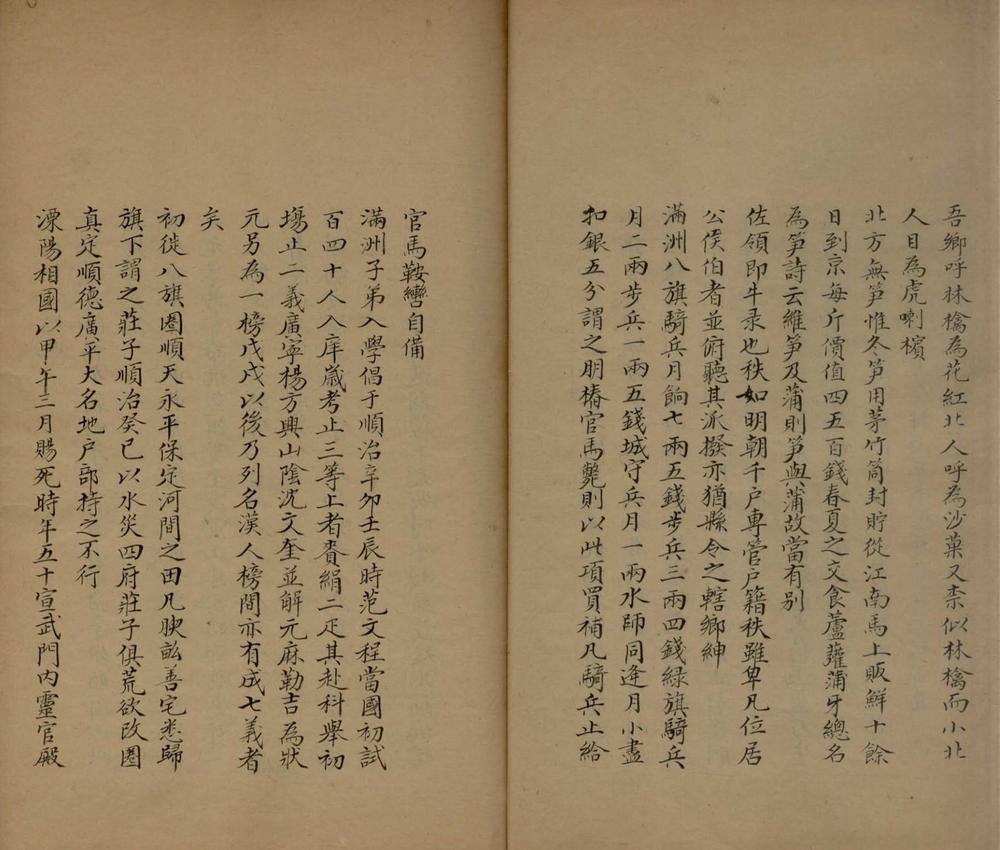 吾鄉呼林檎為花紅北人呼為沙菓又柰似林檎而小北
人目為虎喇檳
北方無笋惟冬笋用茅竹筒封貯從江南馬上販鮮十餘
日到京每斤價值四五百錢春夏之交食蘆蕹蒲牙總名
為笋詩云維笋及蒲則笋與蒲故當有别
佐領即牛录也秩如明朝千户專管户籍秩雖卑凡位居
公侯伯者並俯聽其派撥亦猶縣令之轄鄉紳
滿洲八旗騎兵月餉七兩五錢步兵三兩四錢綠旗騎兵
月二兩步兵一兩五錢城守兵月一兩水師同逢月小盡
扣銀五分謂之朋樁官馬斃則以此項買補凡騎兵止給
官馬鞍轡自備
滿洲子弟入學倡于順治辛卯壬辰時范文程當國初試
百四十人入庠歲考止三等上者賚絹二疋其赴科舉初
塲止二義廣寧楊方興山陰沈文奎並解元麻勒吉為狀
元另為一榜戊戌以後乃列名漢人榜間亦有成七義者
矣
初徙八旗圈順天永平保定河間之田凡腴畝善宅悉歸
旗下謂之莊子順治癸巳以水災四府莊子俱荒欲改圈
真定順德廣平大名地户部持之不行
溧陽相國以甲午三月賜死時年五十宣武門內靈官殿